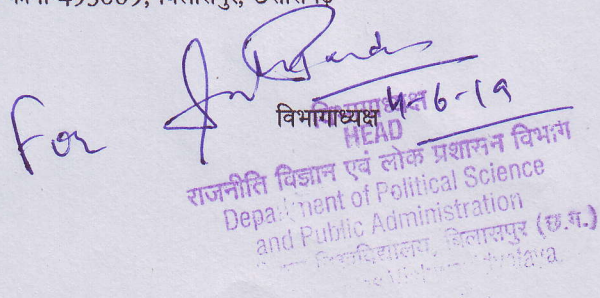 बिलासपुर, छत्तीसगढ़
For
विभागाध्यक्ष 4-6-19
विभागाध्यक्ष
HEAD
राजनीति विज्ञान एवं लोक प्रशासन विभाग
Department of Political Science
and Public Administration
विश्वविद्यालय, बिलासपुर (छ.ग.)